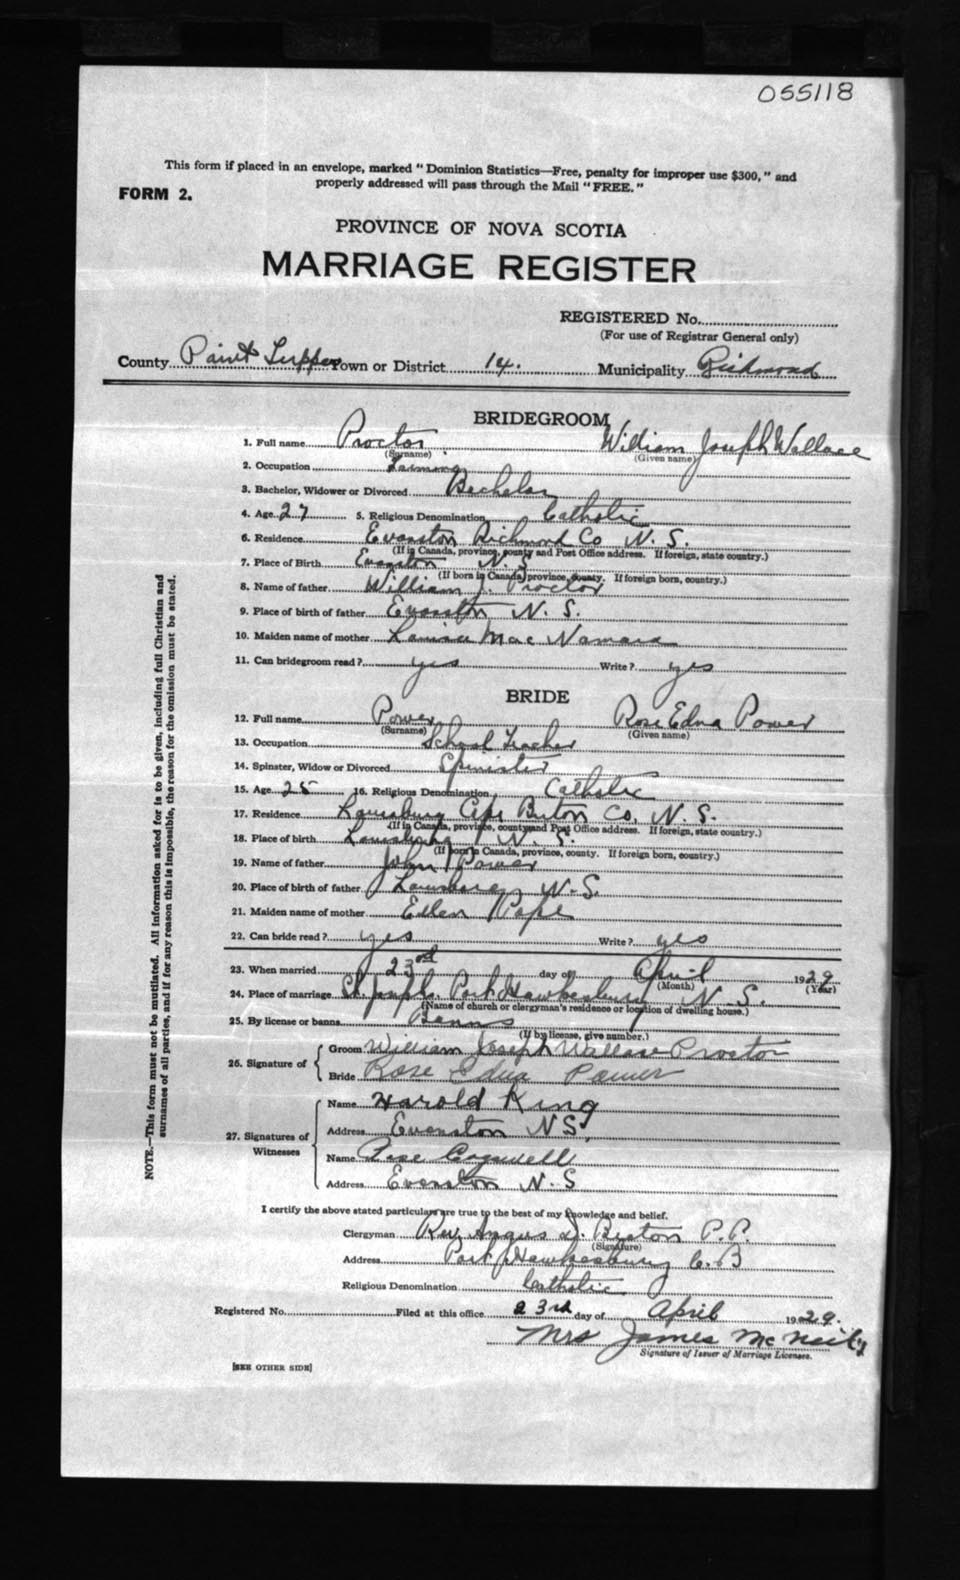 055118
This form if placed in an envelope, marked "Dominion Statistics—Free, penalty for improper use $300," and
properly addressed will pass through the Mail "FREE."
FORM 2.
PROVINCE OF NOVA SCOTIA
MARRIAGE REGISTER
REGISTERED No.
(For use of Registrar General only)
County Point Tupper Town or District 14. Municipality Richmond
BRIDEGROOM
1. Full name Proctor William Joseph Wallace
(Surname) (Given name)
2. Occupation Farming
3. Bachelor, Widower or Divorced Bachelor
4. Age 27 5. Religious Denomination Catholic
6. Residence Evanston Richmond Co N. S.
(If in Canada, province, county and Post Office address. If foreign, state country.)
7. Place of Birth Evanston N. S
(If born in Canada, province, county. If foreign born, country.)
8. Name of father William J. Proctor
9. Place of birth of father Evanston N. S.
10. Maiden name of mother Mac Namara
11. Can bridegroom read? yes Write? yes
BRIDE
12. Full name Power Rose Edna Power
(Surname) (Given name)
13. Occupation School Teacher
14. Spinster, Widow or Divorced Spinister
15. Age 25 16. Religious Denomination Catholic
17. Residence Louisburg Cape Breton Co. N. S.
(If in Canada, province, county and Post Office address. If foreign, state country.)
18. Place of birth Louisburg N. S.
(If born in Canada, province, county. If foreign born, country.)
19. Name of father John Power
20. Place of birth of father Louisburg N. S.
21. Maiden name of mother Ellen Pope
22. Can bride read? yes Write? yes
23. When married 23rd day of April 1929
(Month) (Year)
24. Place of marriage St Joseph's Port Hawkesbury N. S.
(Name of church or clergyman's residence or location of dwelling house.)
25. By license or banns Banns
(If by license, give number.)
26. Signature of
Groom William Joseph Wallace Proctor
Bride Rose Edna Power
27. Signatures of Witnesses
Name Harold King
Address Evanston N S.
Name Cogswell
Address Evanston N. S
I certify the above stated particulars are true to the best of my knowledge and belief.
Clergyman Rev Angus D. P. P.
(Signature)
Address Port Hawkesbury C. B
Religious Denomination Catholic
Registered No. Filed at this office 23rd day of April 1929.
Mrs James McNeily
Signature of Issuer of Marriage Licenses.
[SEE OTHER SIDE]
NOTE.—This form must not be mutilated. All information asked for is to be given, including full Christian and
surnames of all parties, and if for any reason this is impossible, the reason for the omission must be stated.